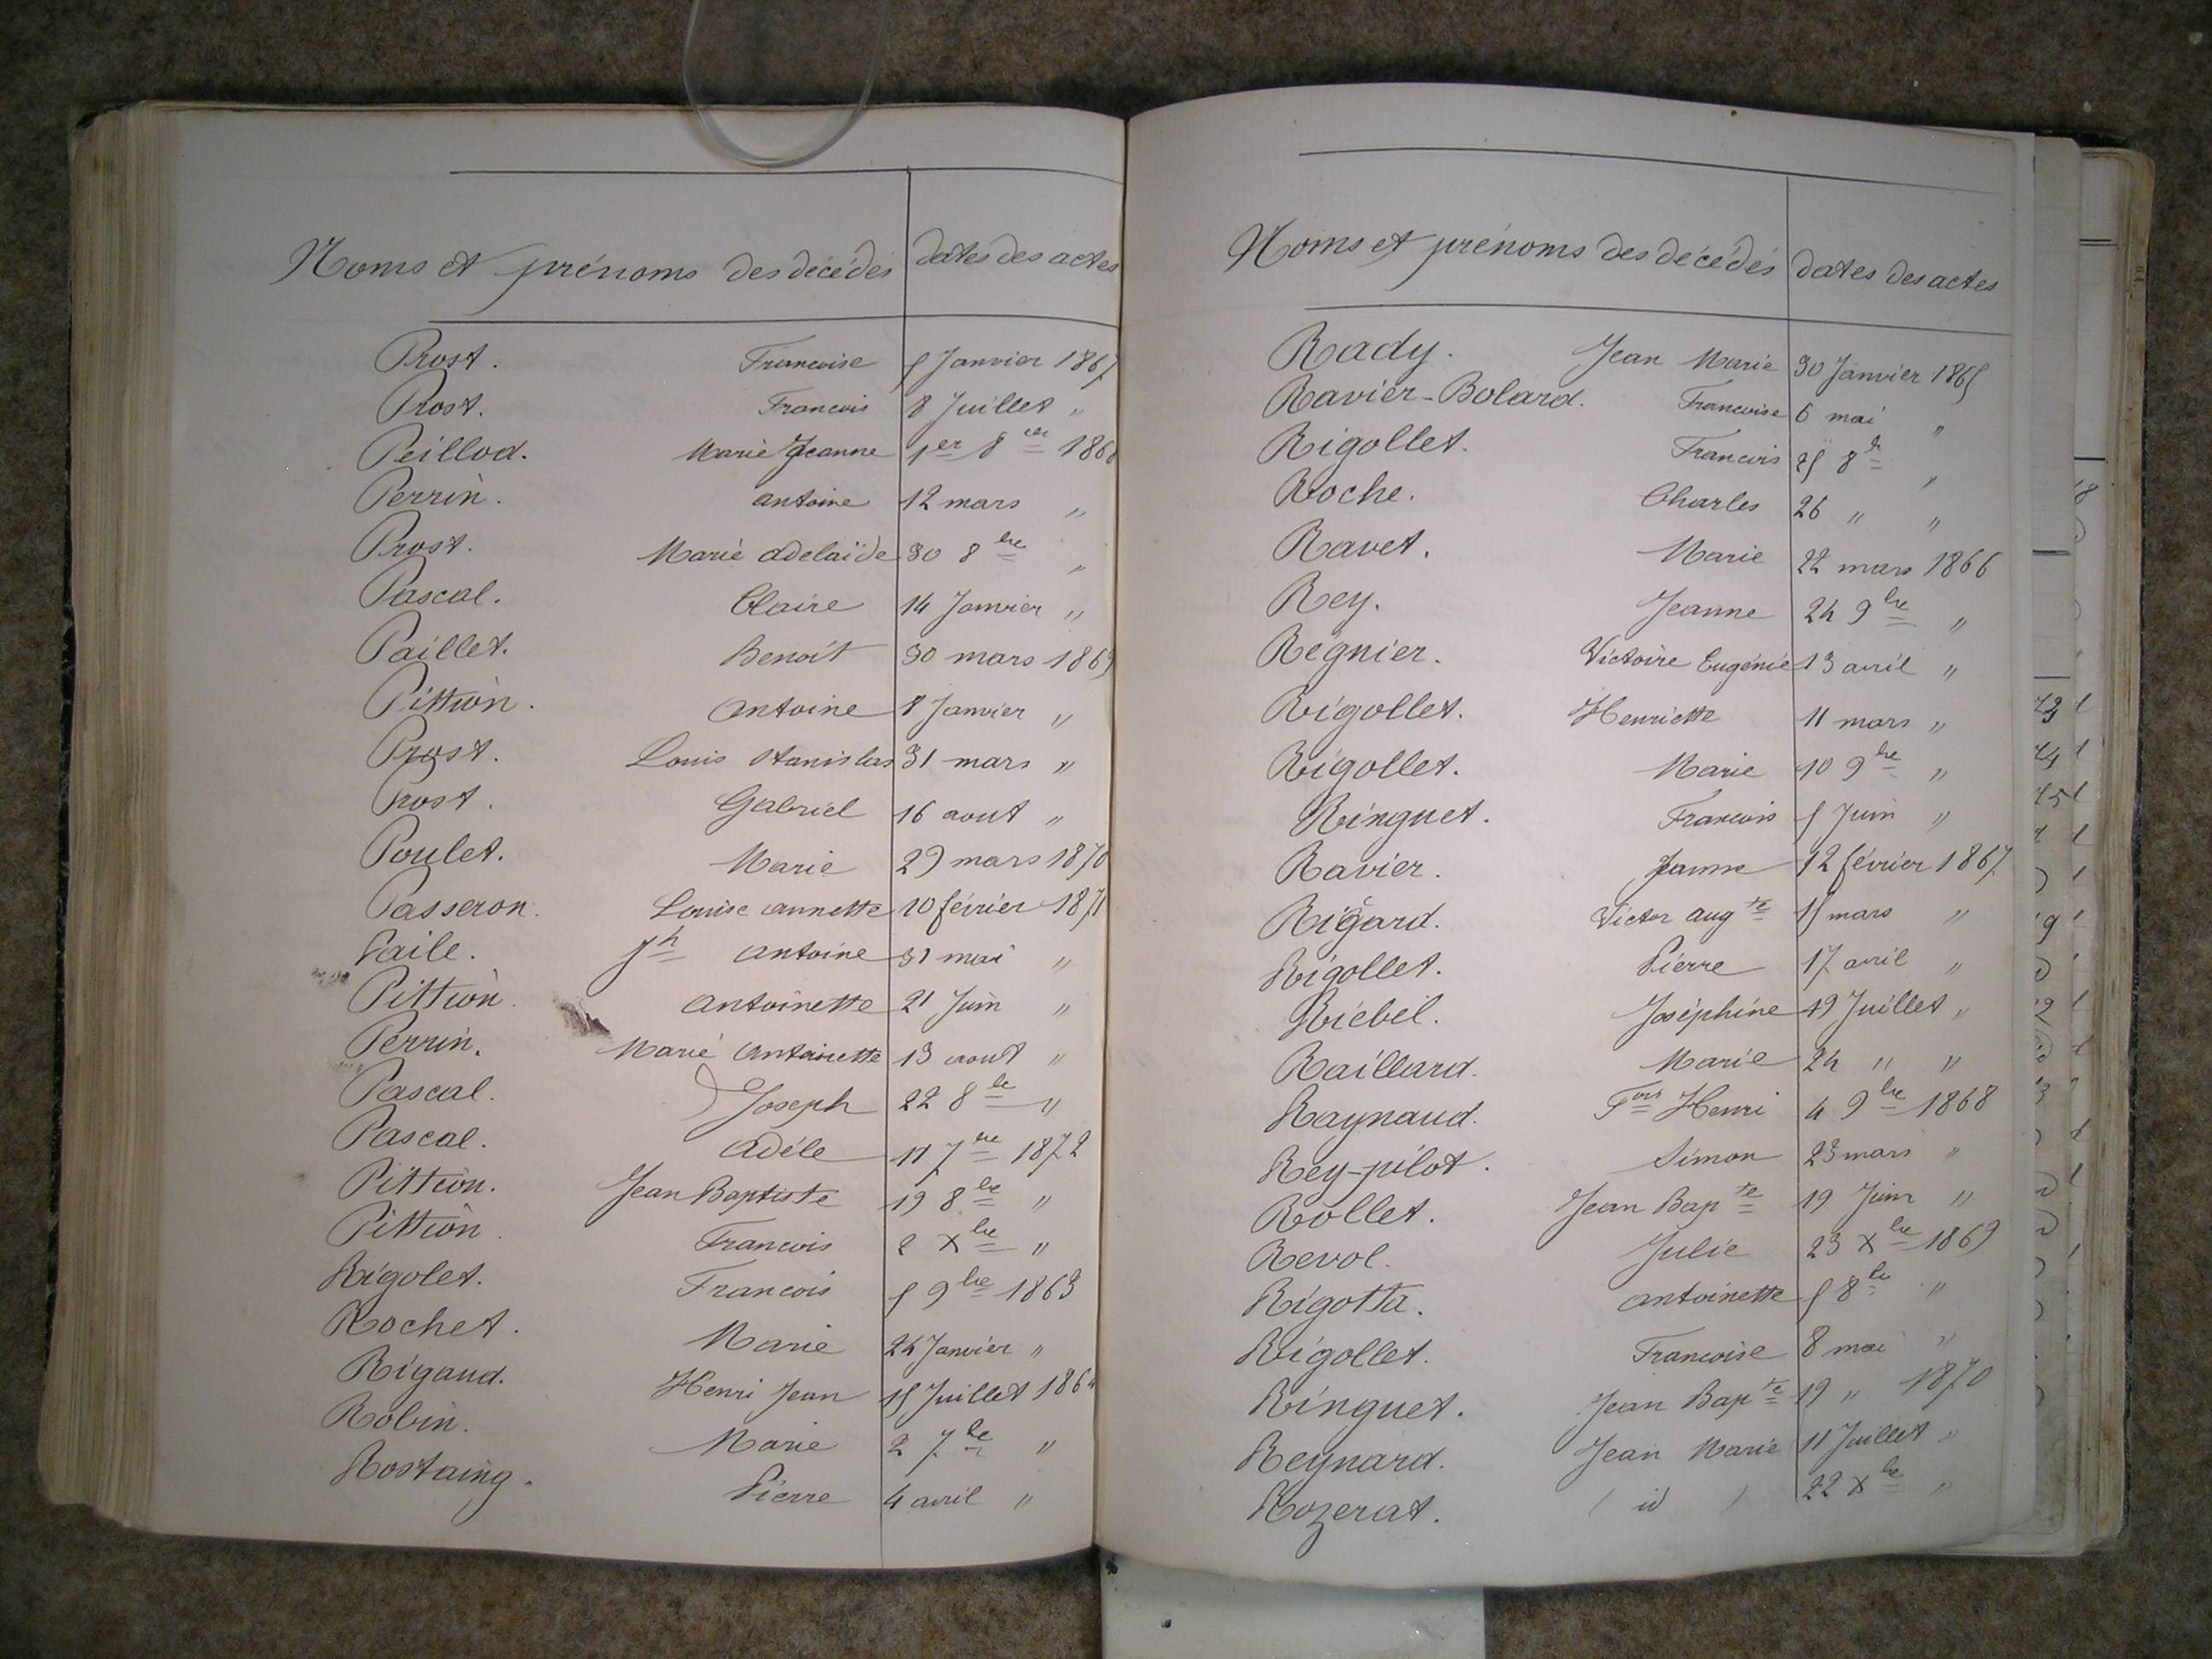 Noms et prénoms des décédés dates des actes
Prost. Francoise 5 Janvier 1867
Prost. Francois 8 Juillet "
Peillod. Marie Jeanne 1er 8bre 1868
Perrin. antoine 12 mars "
Prost. Marie adelaïde 30 8bre "
Pascal. Claire 14 Janvier "
Paillet. Benoit 30 mars 1869
Pittion. antoine 8 Janvier "
Prost. Louis Stanislas 31 mars "
Prost. Gabriel 16 aout "
Poulet. Marie 29 mars 1870
Passeron. Louise annette 20 février 1871
Paile. Jh antoine 31 mai "
Pittion. antoinette 21 Juin "
Perrin. Marie antoinette 13 aout "
Pascal. Joseph 22 8bre "
Pascal. adèle 17 7bre 1872
Pittion. Jean Baptiste 19 8bre "
Pittion. Francois 2 Xbre "
Rigolet. Francois 5 9bre 1863
Rochet. Marie 24 Janvier "
Rigaud. Henri Jean 15 Juillet 1864
Robin. Marie 2 7bre "
Rostaing. Pierre 4 avril "
Noms et prénoms des décédés dates des actes
Rady. Jean Marie 30 Janvier 1865
Ravier-Bolard. Francoise 6 mai "
Rigollet. Francois 25 8bre "
Roche. Charles 26 " "
Ravet. Marie 22 mars 1866
Rey. Jeanne 24 9bre "
Régnier. Victoire Eugénie 13 avril "
Rigollet. Henriette 11 mars "
Rigollet. Marie 10 9bre "
Ringuet. Francois 5 Juin "
Ravier. Jeanne 12 février 1867
Rigard. Victor augte 15 mars "
Rigollet. Pierre 17 avril "
Riebel. Joséphine 19 Juillet "
Raillard. Marie 24 " "
Raynaud. Fois Henri 4 9bre 1868
Rey-pilot. Simon 23 mars "
Rollet. Jean Bapte 19 Juin "
Revol. Julie 23 Xbre 1869
Rigotta. antoinette 5 8bre "
Rigollet. Francoise 8 mai "
Ringuet. Jean Bapte 19 " 1870
Reynard. Jean Marie 11 Juillet "
Rozerat. ( id ) 22 Xbre "